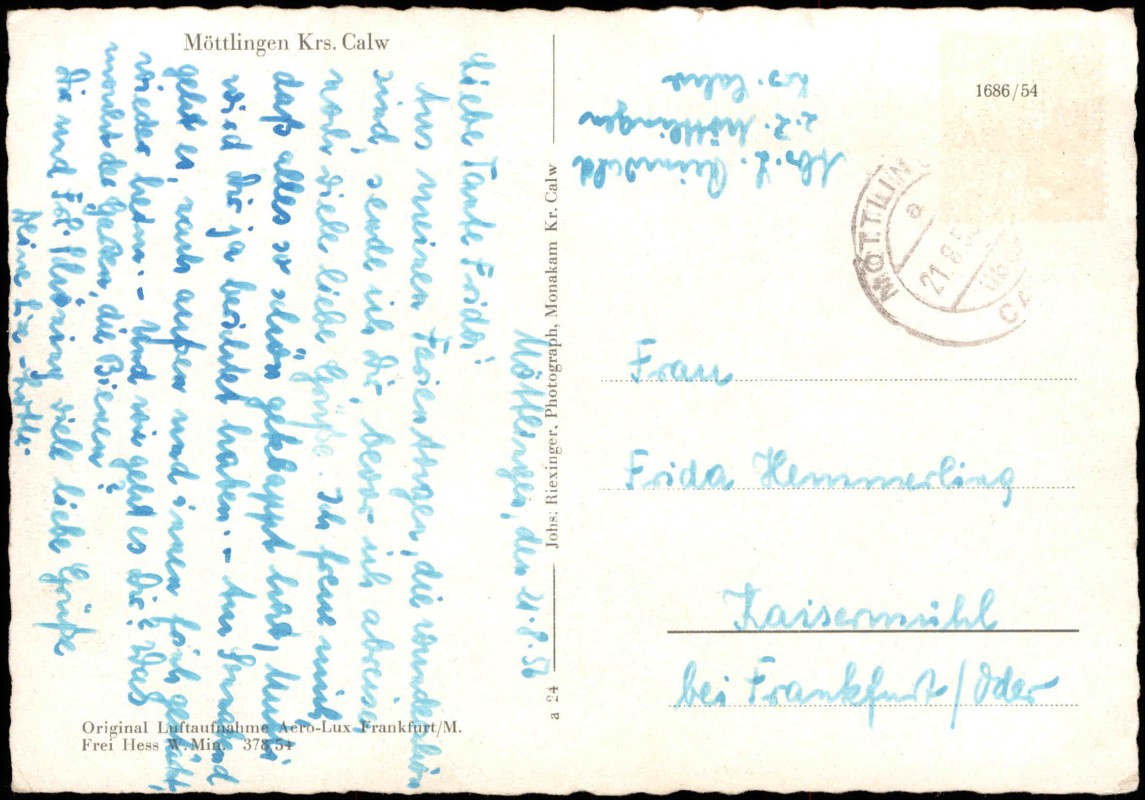 Möttlingen Krs. Calw
Möttlingen, den 21.8.5
Liebe Tante Frida!
Aus meinen Ferientagen, die wunderschön
sind, sende ich Dir, bevor ich abreise
noch viele liebe Grüße. Ich freue mich,
daß alles so schön geklappt hat, Mutti
wird Dir ja berichtet haben. - Am Sonnabend
geht es, nach außen und innen frisch gestärkt,
wieder heim. - Und wie geht es Dir? Was
macht der Garten, die Bienen?
Dir und Frl. viele liebe Grüße
Deine
Original Luftaufnahme Aero-Lux Frankfurt/M.
Frei Hess W. Min. 378/54
a 24
Johs: Riexinger, Photograph, Monakam Kr. Calw
Abs. L.
z. Z. Möttlingen
Krs. Calw
1686/54
MÖTTLIN
a
21.8.5
üb
CA
Frau
Frida Hemmerling
Kaisermühl
bei Frankfurt/Oder